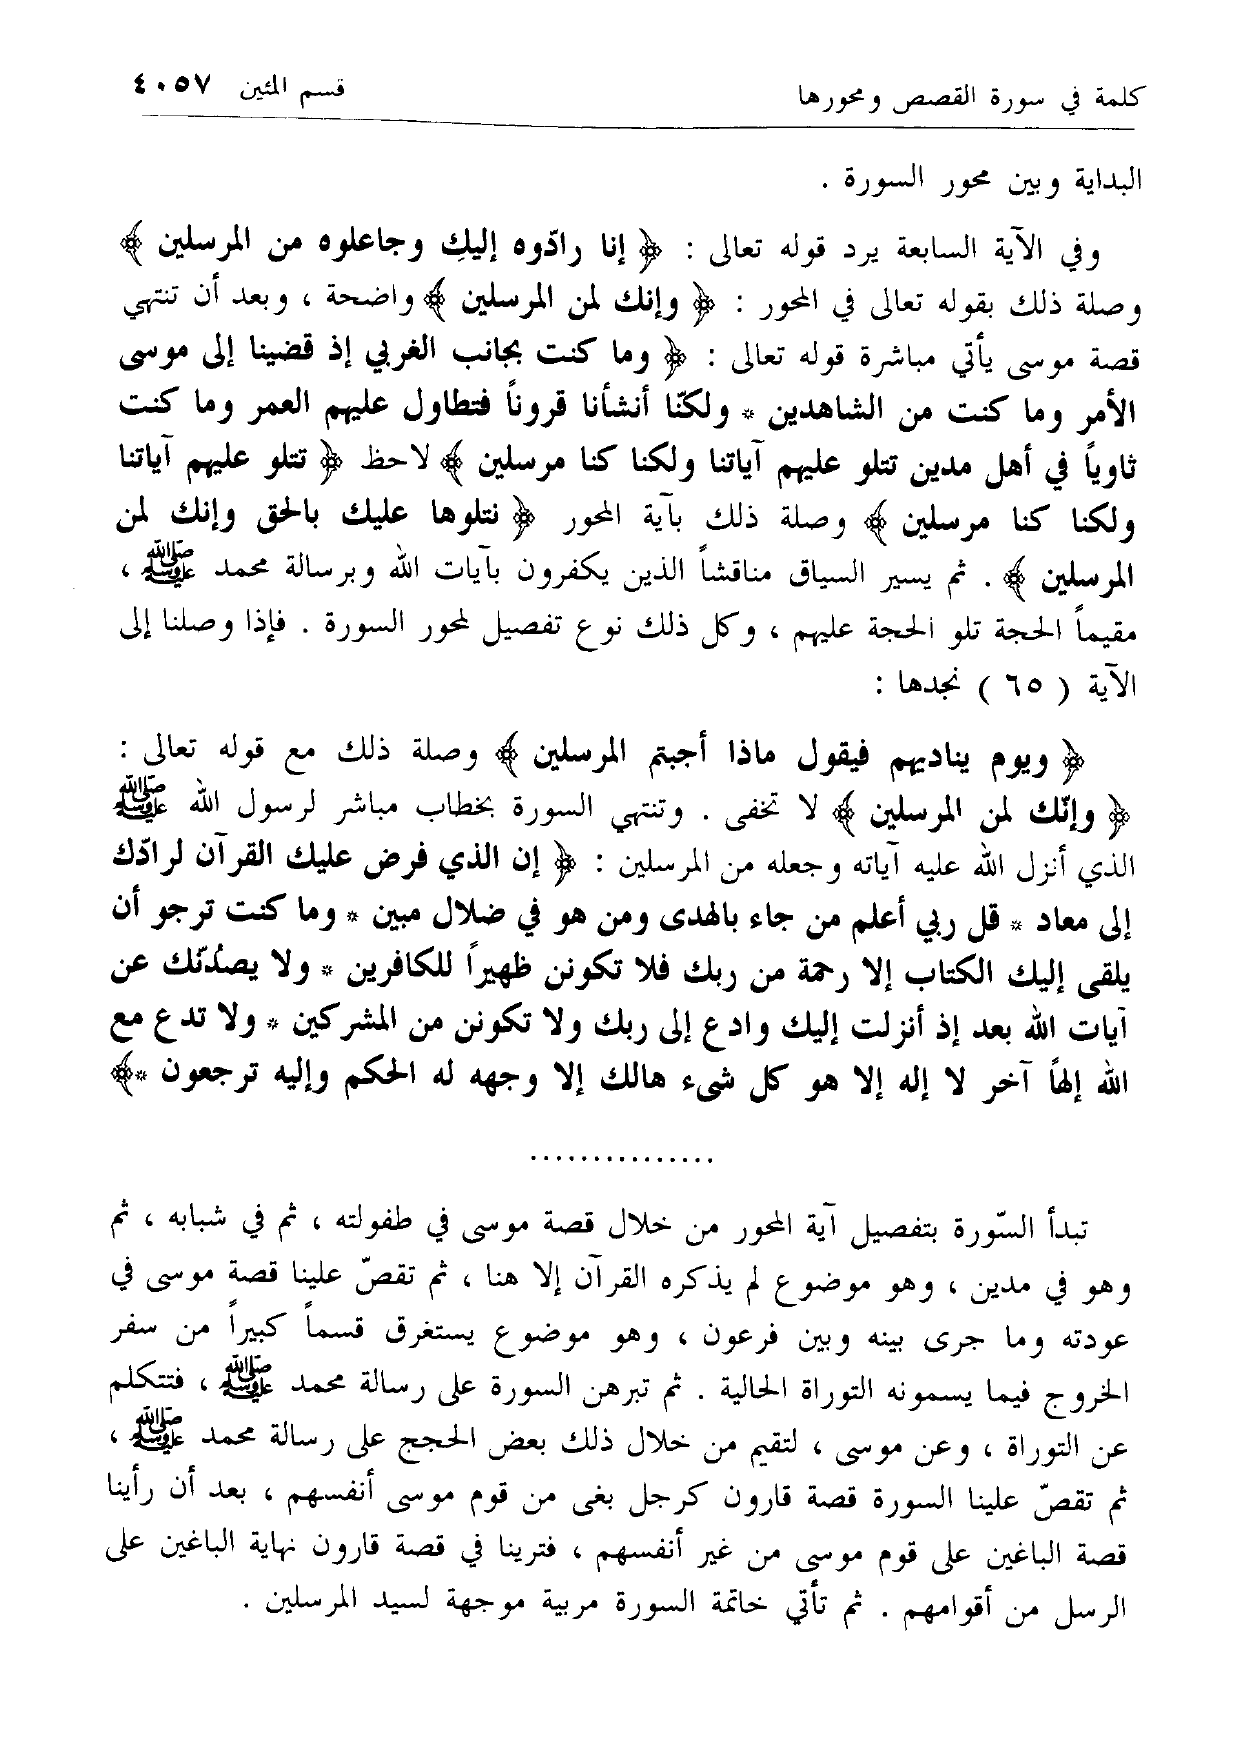 كلمة في سورة القصص ومحورها قسم المئين ٤٠٥٧
البداية وبين محور السورة .
وفي الآية السابعة يرد قوله تعالى : ﴿ إنا رادّوه إليكِ وجاعلوه من المرسلين ﴾
وصلة ذلك بقوله تعالى في المحور : ﴿ وإنك لمن المرسلين ﴾ واضحة ، وبعد أن تنتهي
قصة موسى يأتي مباشرة قوله تعالى : ﴿ وما كنت بجانب الغربي إذ قضينا إلى موسى
الأمر وما كنت من الشاهدين * ولكنّا أنشأنا قروناً فتطاول عليهم العمر وما كنت
ثاوياً في أهل مدين تتلو عليهم آياتنا ولكنا كنا مرسلين ﴾ لاحظ ﴿ تتلو عليهم آياتنا
ولكنا كنا مرسلين ﴾ وصلة ذلك بآية المحور ﴿ نتلوها عليك بالحق وإنك لمن
المرسلين ﴾ . ثم يسير السياق مناقشاً الذين يكفرون بآيات الله وبرسالة محمد ﷺ ،
مقيماً الحجة تلو الحجة عليهم ، وكل ذلك نوع تفصيل لمحور السورة . فإذا وصلنا إلى
الآية ( ٦٥ ) نجدها :
﴿ ويوم يناديهم فيقول ماذا أجبتم المرسلين ﴾ وصلة ذلك مع قوله تعالى :
﴿ وإنّك لمن المرسلين ﴾ لا تخفى . وتنتهي السورة بخطاب مباشر لرسول الله ﷺ
الذي أنزل الله عليه آياته وجعله من المرسلين : ﴿ إن الذي فرض عليك القرآن لرادّك
إلى معاد * قل ربي أعلم من جاء بالهدى ومن هو في ضلال مبين * وما كنت ترجو أن
يلقى إليك الكتاب إلا رحمة من ربك فلا تكونن ظهيراً للكافرين * ولا يصدّنّك عن
آيات الله بعد إذ أنزلت إليك وادع إلى ربك ولا تكونن من المشركين * ولا تدع مع
الله إلهاً آخر لا إله إلا هو كل شيء هالك إلا وجهه له الحكم وإليه ترجعون *﴾
...............
تبدأ السّورة بتفصيل آية المحور من خلال قصة موسى في طفولته ، ثم في شبابه ، ثم
وهو في مدين ، وهو موضوع لم يذكره القرآن إلا هنا ، ثم تقصّ علينا قصة موسى في
عودته وما جرى بينه وبين فرعون ، وهو موضوع يستغرق قسماً كبيراً من سفر
الخروج فيما يسمونه التوراة الحالية . ثم تبرهن السورة على رسالة محمد ﷺ ، فتتكلم
عن التوراة ، وعن موسى ، لتقيم من خلال ذلك بعض الحجج على رسالة محمد ﷺ ،
ثم تقصّ علينا السورة قصة قارون كرجل بغى من قوم موسى أنفسهم ، بعد أن رأينا
قصة الباغين على قوم موسى من غير أنفسهم ، فترينا في قصة قارون نهاية الباغين على
الرسل من أقوامهم . ثم تأتي خاتمة السورة مربية موجهة لسيد المرسلين .